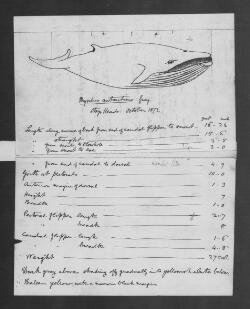 Megaptera antarctica Gray.
Hoop Beach. October 1872.
feet inch
Length along curve of back from end of caudal flipper to snout. 15 - 26
" straight 15 - 6
" from snout to blowhole 2 - 8
" from snout to eye 3 - 0
" from end of caudal to dorsal 4 - 9
Girth at pectorals 10 - 0
Anterior margin of dorsal 1 - 3
Height " " 9
Breadth " " 1 - 3
Pectoral flipper length 2 - 7
" " breadth 8
Caudal flipper length 1 - 6
" " breadth 4 - 8
Weight 27 cwt.
Dark grey above shading off gradually into yellowish white below.
Baleen yellow, with a narrow black margin